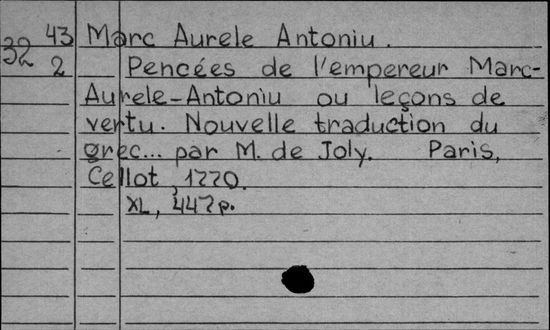 43 Marc Aurele Antoniu.
32 2 Pencées de l'empereur Marc-
Aurele-Antoniu ou leçons de
vertu. Nouvelle traduction du
grec... par M. de Joly. Paris,
Cellot, 1770.
XL, 447 p.